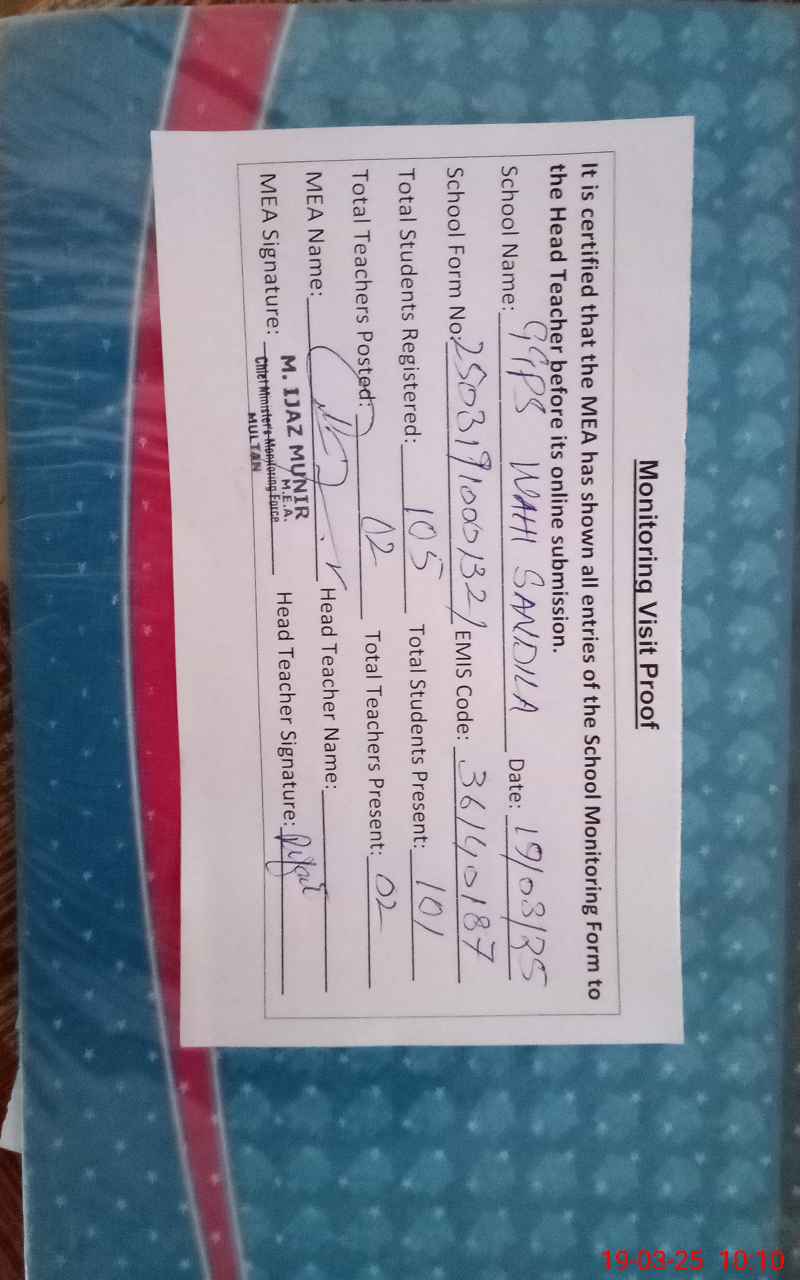 Monitoring Visit Proof
It is certified that the MEA has shown all entries of the School Monitoring Form to
the Head Teacher before its online submission.
School Name: GGPS WAHI SANDILA Date: 19/03/25
School Form No: 25031910001321 EMIS Code: 36140187
Total Students Registered: 105 Total Students Present: 101
Total Teachers Posted: 02 Total Teachers Present: 02
MEA Name: Head Teacher Name:
MEA Signature: Head Teacher Signature:
M. IJAZ MUNIR
M.E.A.
Chief Minister's Monitoring Force
MULTAN
19-03-25 10:10